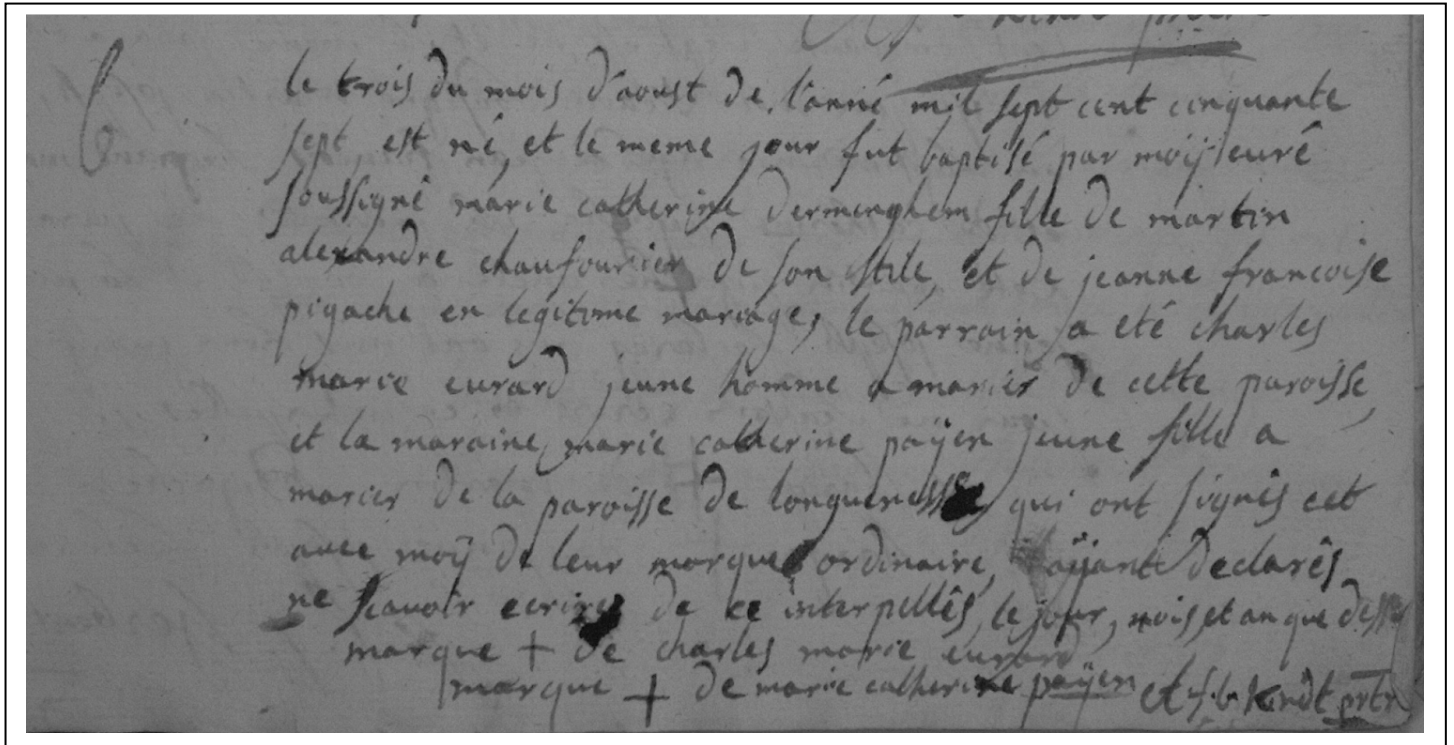 le trois du mois d'aoust de l'anné mil sept cent cinquante
sept est né, et le meme jour fut baptisé par moÿ curé
soussigné marie catherine dermenghem fille de martin
alexandre chaufournier de son stile, et de jeanne francoise
pigache en legitime mariage, le parrain a eté charles
marie evrard jeune homme a marier de cette paroisse,
et la maraine marie catherine paÿen jeune fille a
marier de la paroisse de longuenesse, qui ont signés cet
avec moÿ de leur marque ordinaire, aÿant declarés
ne scavoir ecrire de ce interpellés, le jour, mois et an que dessus
marque + de charles marie evrard
marque + de marie catherine paÿen